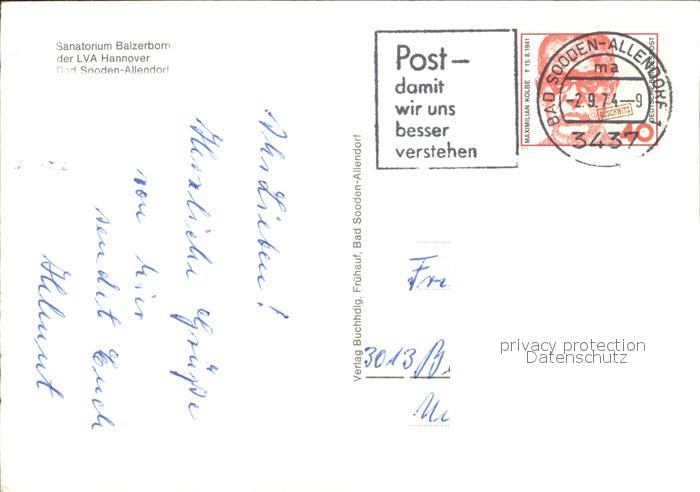 Sanatorium Balzerborn
der LVA Hannover
Bad Sooden-Allendorf
Ihr Lieben!
Herzliche Grüße
von hier
sendet Euch
Helmut
Verlag Buchhdlg. Frühauf, Bad Sooden-Allendorf
Post–
damit
wir uns
besser
verstehen
MAXIMILIAN KOLBE † 15.8.1941
AUSCHWITZ
BAD SOODEN-ALLENDORF 1
ma
-2.9.74-9
3437
3013
privacy protection
Datenschutz